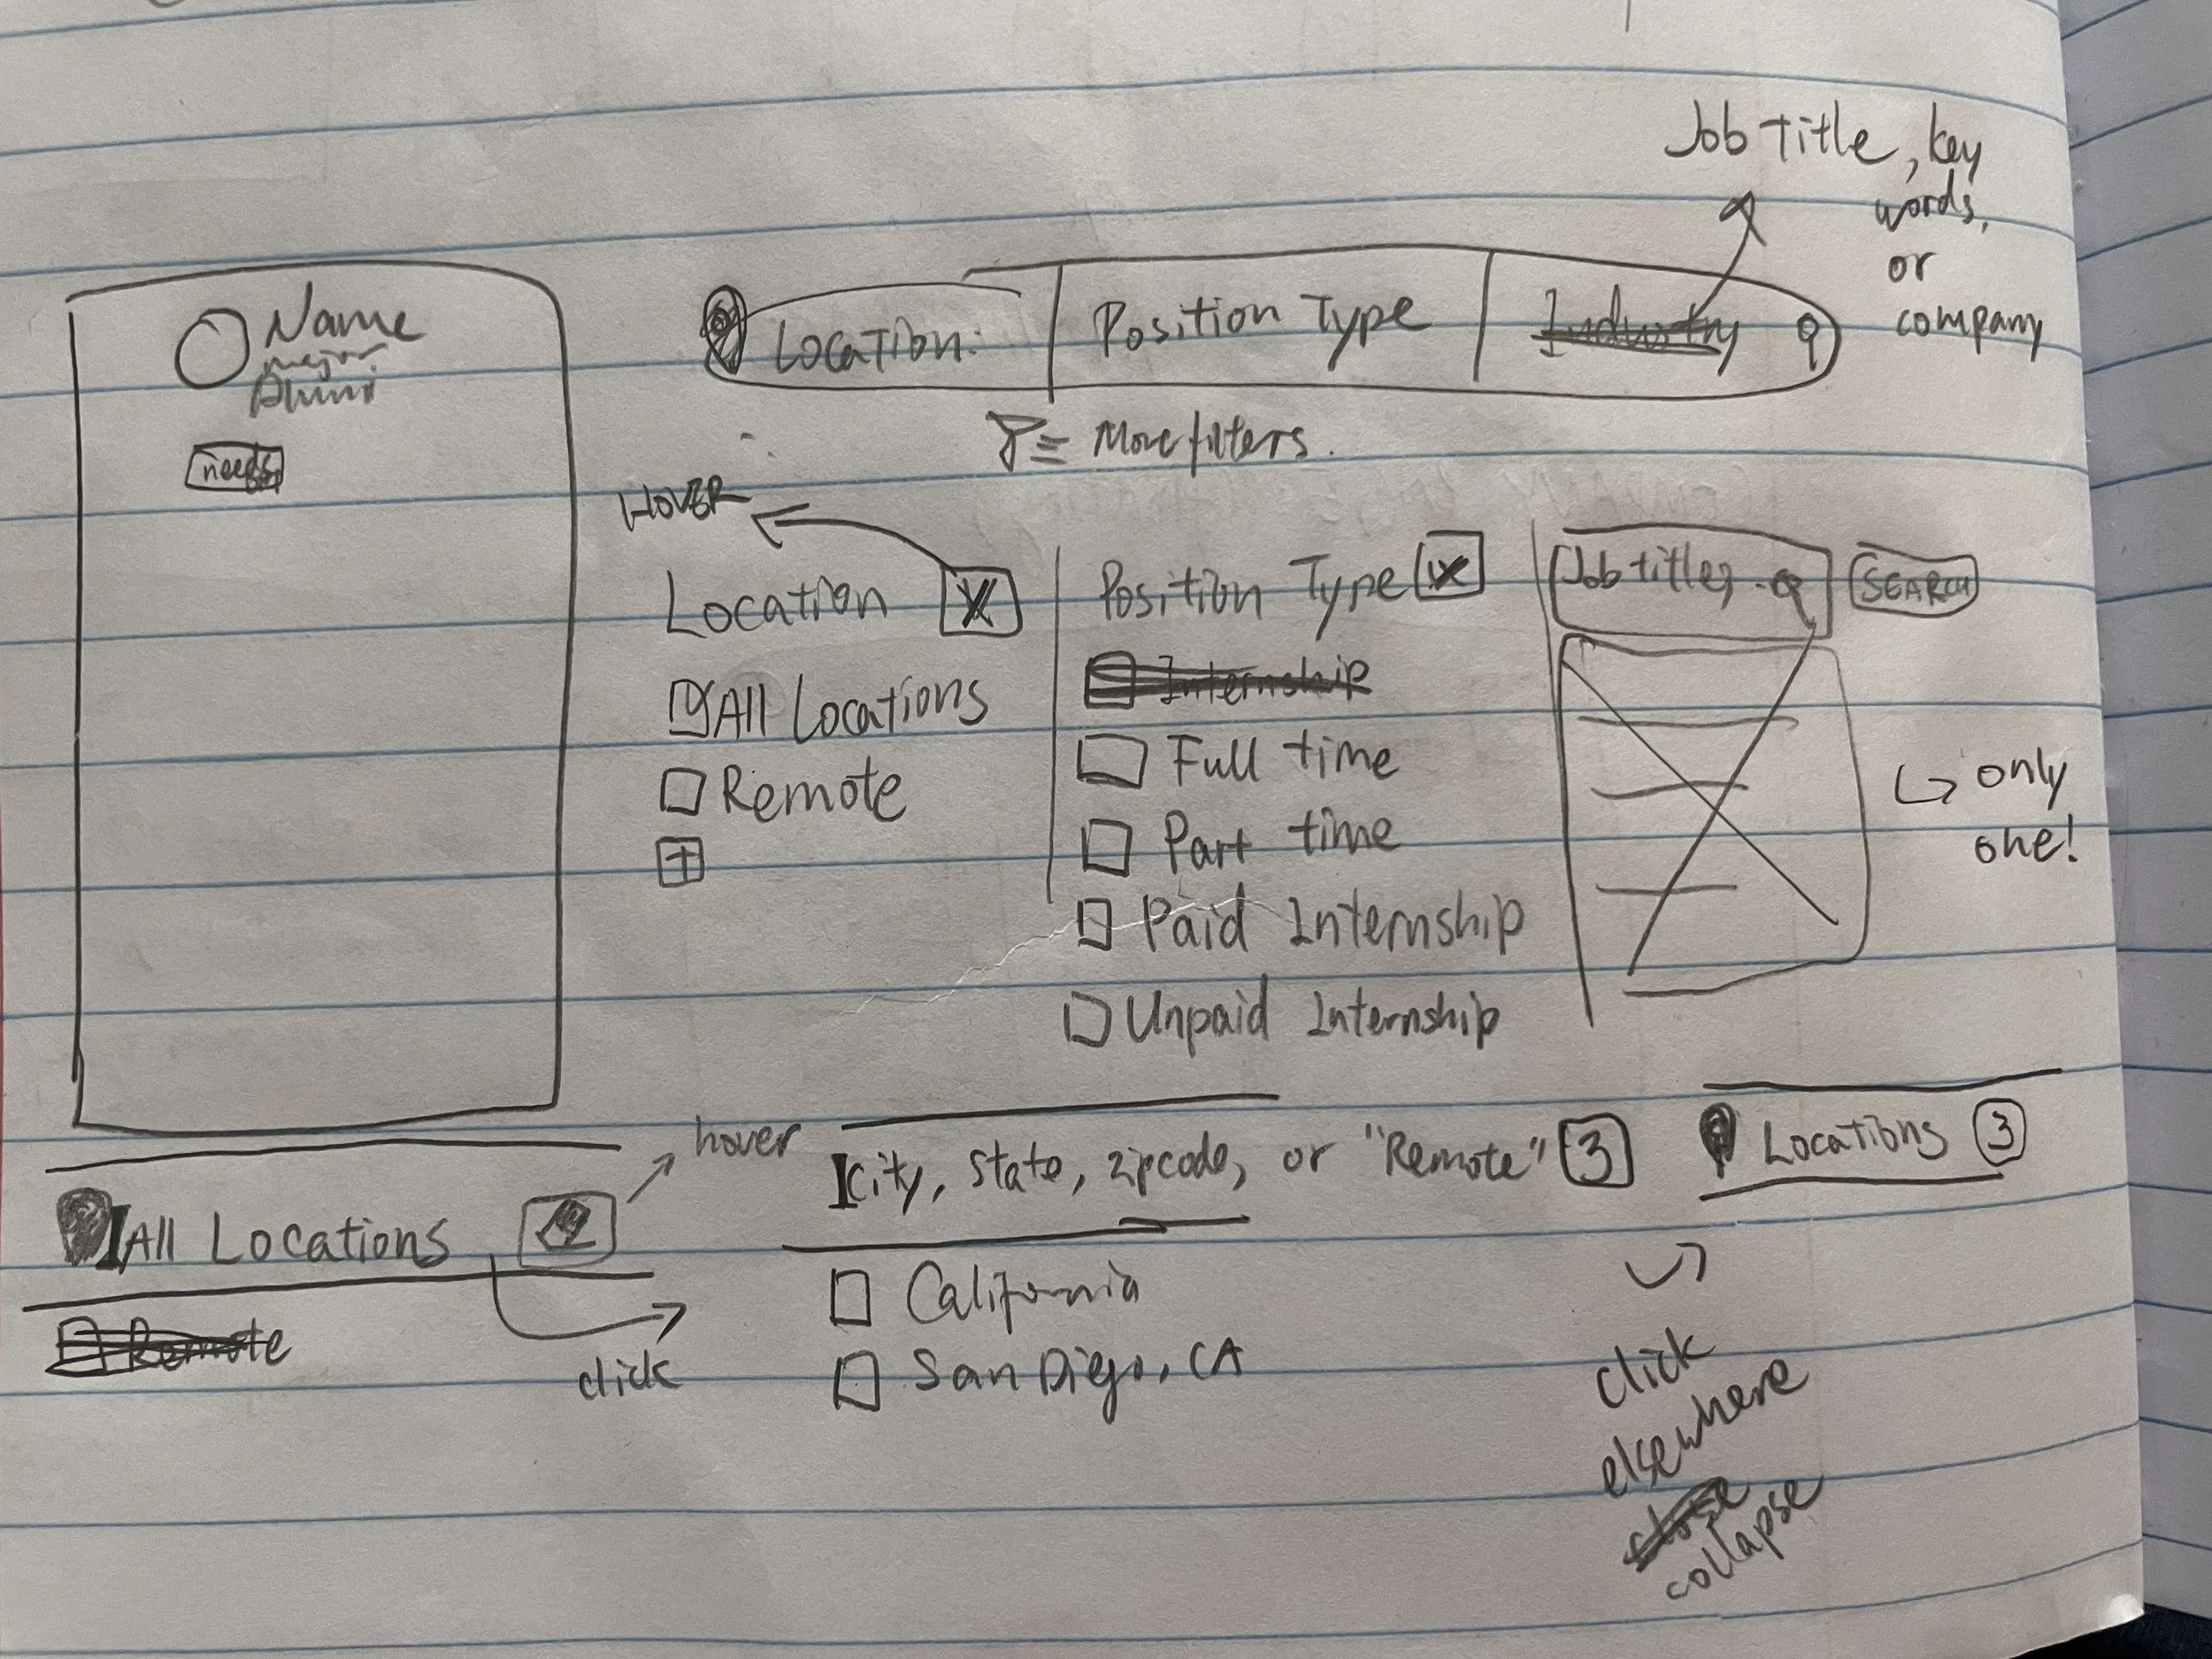 Job Title, key
words,
or
company
Name
major
Alumni
needs
Location:
Position Type
Industry
More filters.
HOVER
Location X
All Locations
Remote
Position Type X
Internship
Full time
Part time
Paid Internship
Unpaid Internship
Job titles
SEARCH
only
one!
hover
All Locations
Remote
click
City, state, zipcode, or "Remote" 3
California
San Diego, CA
Locations 3
click
elsewhere
close
collapse